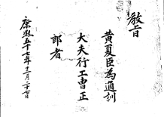 敎旨
黃夏臣爲通訓
大夫行工曹正
郎者
康熙五十一年十二月二十日